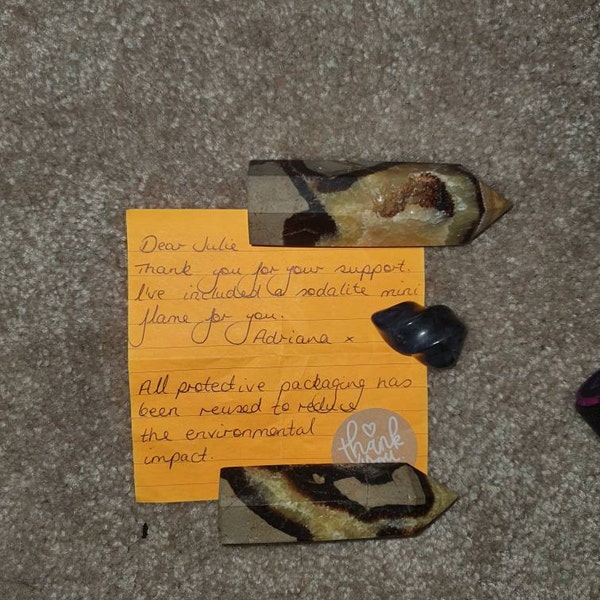 Dear Julie
Thank you for your support.
I've included a sodalite mini
flame for you.
Adriana x
All protective packaging has
been reused to reduce
the environmental
impact.
thank
you